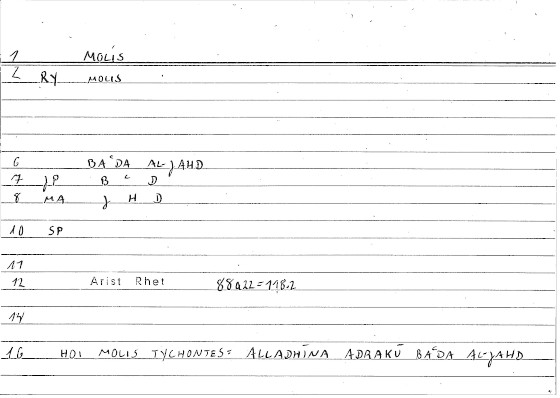 1 MOLIS
2 RY MOLIS
6 BAʿDA AL-JAHD
7 JP B ʿ D
8 MA J H D
10 SP
11
12 Arist Rhet 88a22=198.2
14
16 HOI MOLIS TYCHONTES= ALLADHĪNA ADRAKŪ BAʿDA AL-JAHD